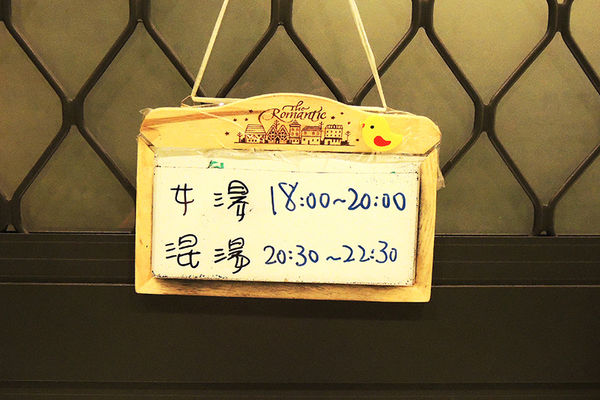 The
Romantic
女湯 18:00~20:00
混湯 20:30~22:30